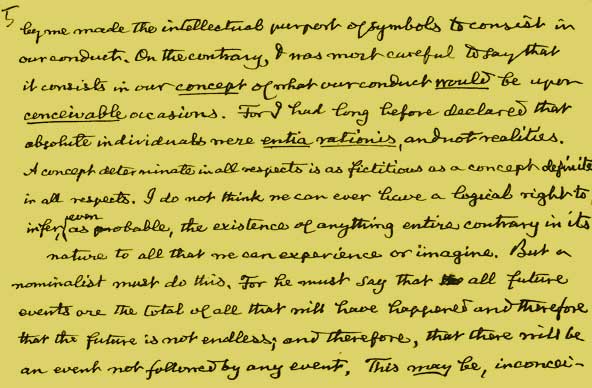 5
by me made the intellectual purport of symbols to consist in
our conduct. On the contrary, I was most careful to say that
it consists in our concept of what our conduct would be upon
conceivable occasions. For I had long before declared that
absolute individuals were entia rationis, and not realities.
A concept determinate in all respects is as fictitious as a concept definite
in all respects. I do not think we can ever have a logical right to
infer, even as probable, the existence of anything entire contrary in its
nature to all that we can experience or imagine. But a
nominalist must do this. For he must say that all future
events are the total of all that will have happened and therefore
that the future is not endless; and therefore, that there will be
an event not followed by any event. This may be, inconcei-